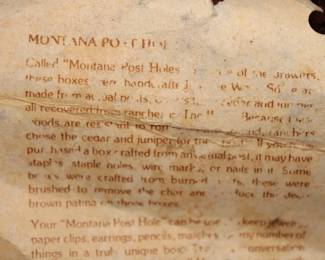 MONTANA POST HOLE
Called "Montana Post Holes of the
these boxes handcrafted
made from actual posts, and
all recovered from ranches in
woods are resistant to ranchers
chose the cedar and juniper for If
purchased a box crafted from an it may have
staples, staple holes, wire marks, or nails in it. Some
boxes were crafted from burned posts, these were
brushed to remove the char and the
brown patina on these boxes.
Your "Montana Post Hole" can be used keep
paper clips, earrings, pencils, matches or any number of
things, in a truly unique box. conversation